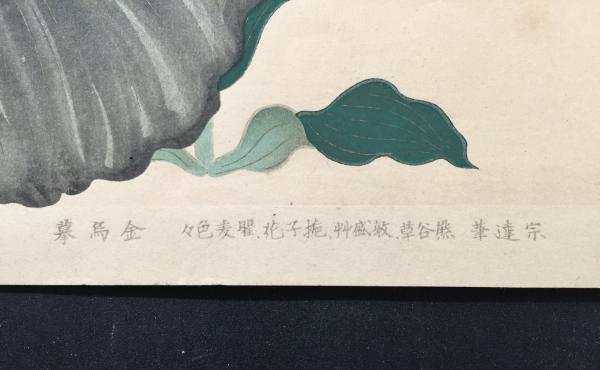 宗達筆 熊谷草、敦盛艸、梔子花、瞿麦色々 金烏摹